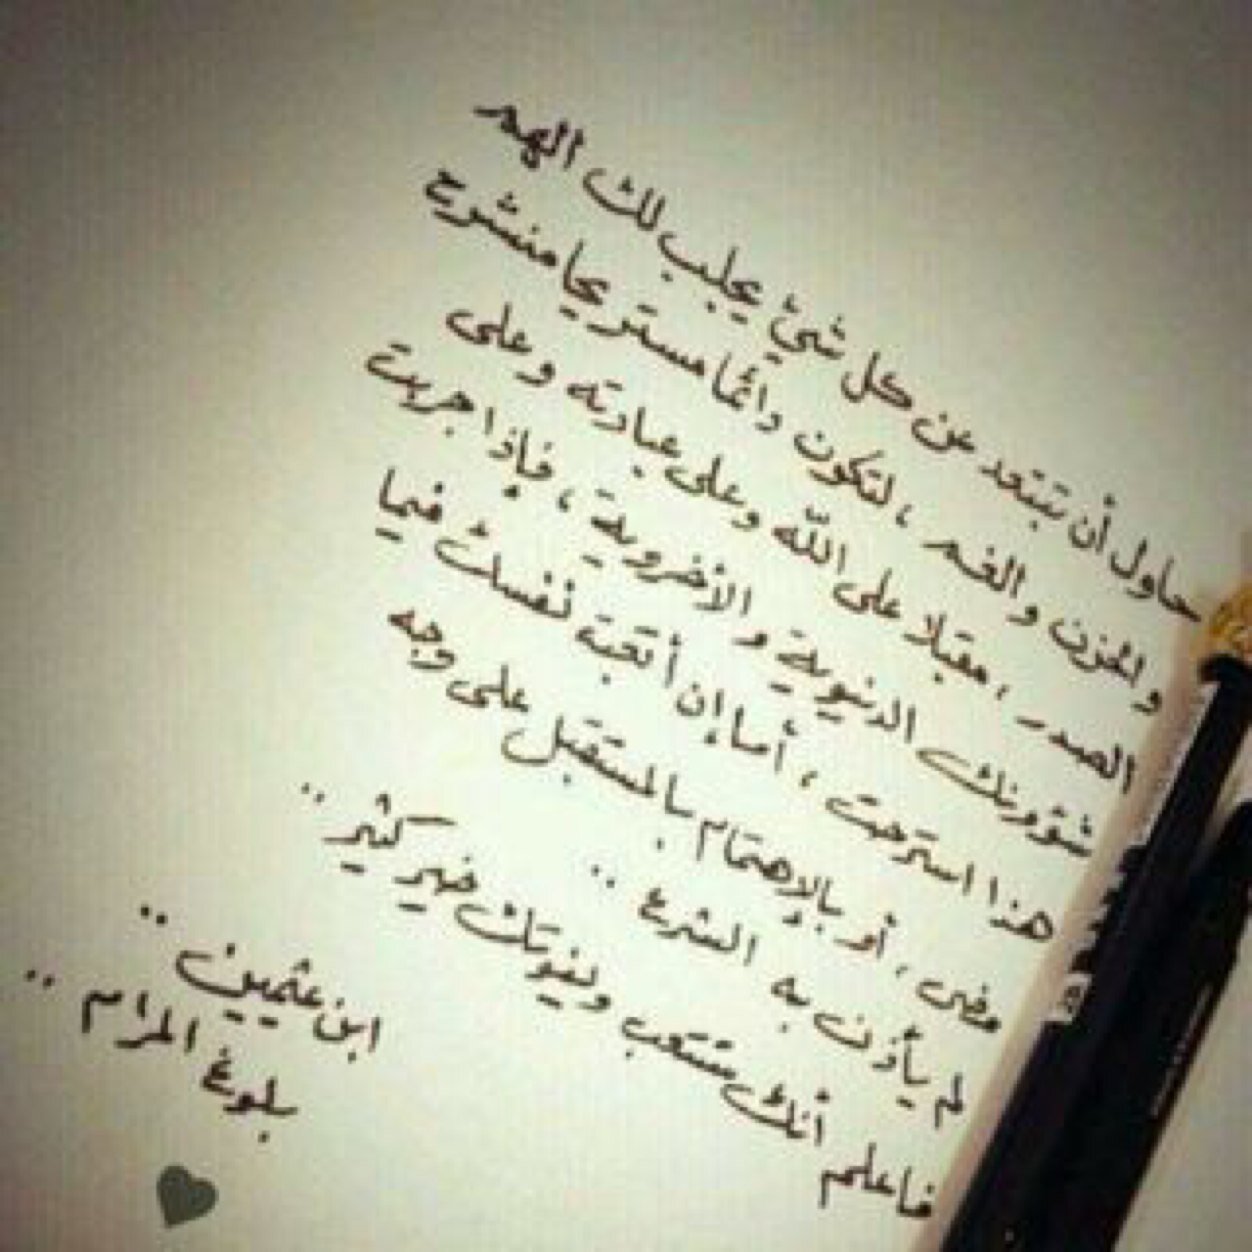 حاول أن تبتعد عن كل شيئ يجلب لك الهم
والحزن والغم ، لتكون دائما مستريحا منشرح
الصدر ، مقبلا على اللّه وعلى عبادته وعلى
شؤونك الدنيوية والأخروية ، فإذا جربت
هذا استرحت ، أما إن أتعبت نفسك فيما
مضى ، أو بالإهتمام بالمستقبل على وجه
لم يأذن به الشرع ..
فاعلم أنك ستتعب ويفوتك خير كثير ..
ابن عثيمين ..
بلوغ المرام ..